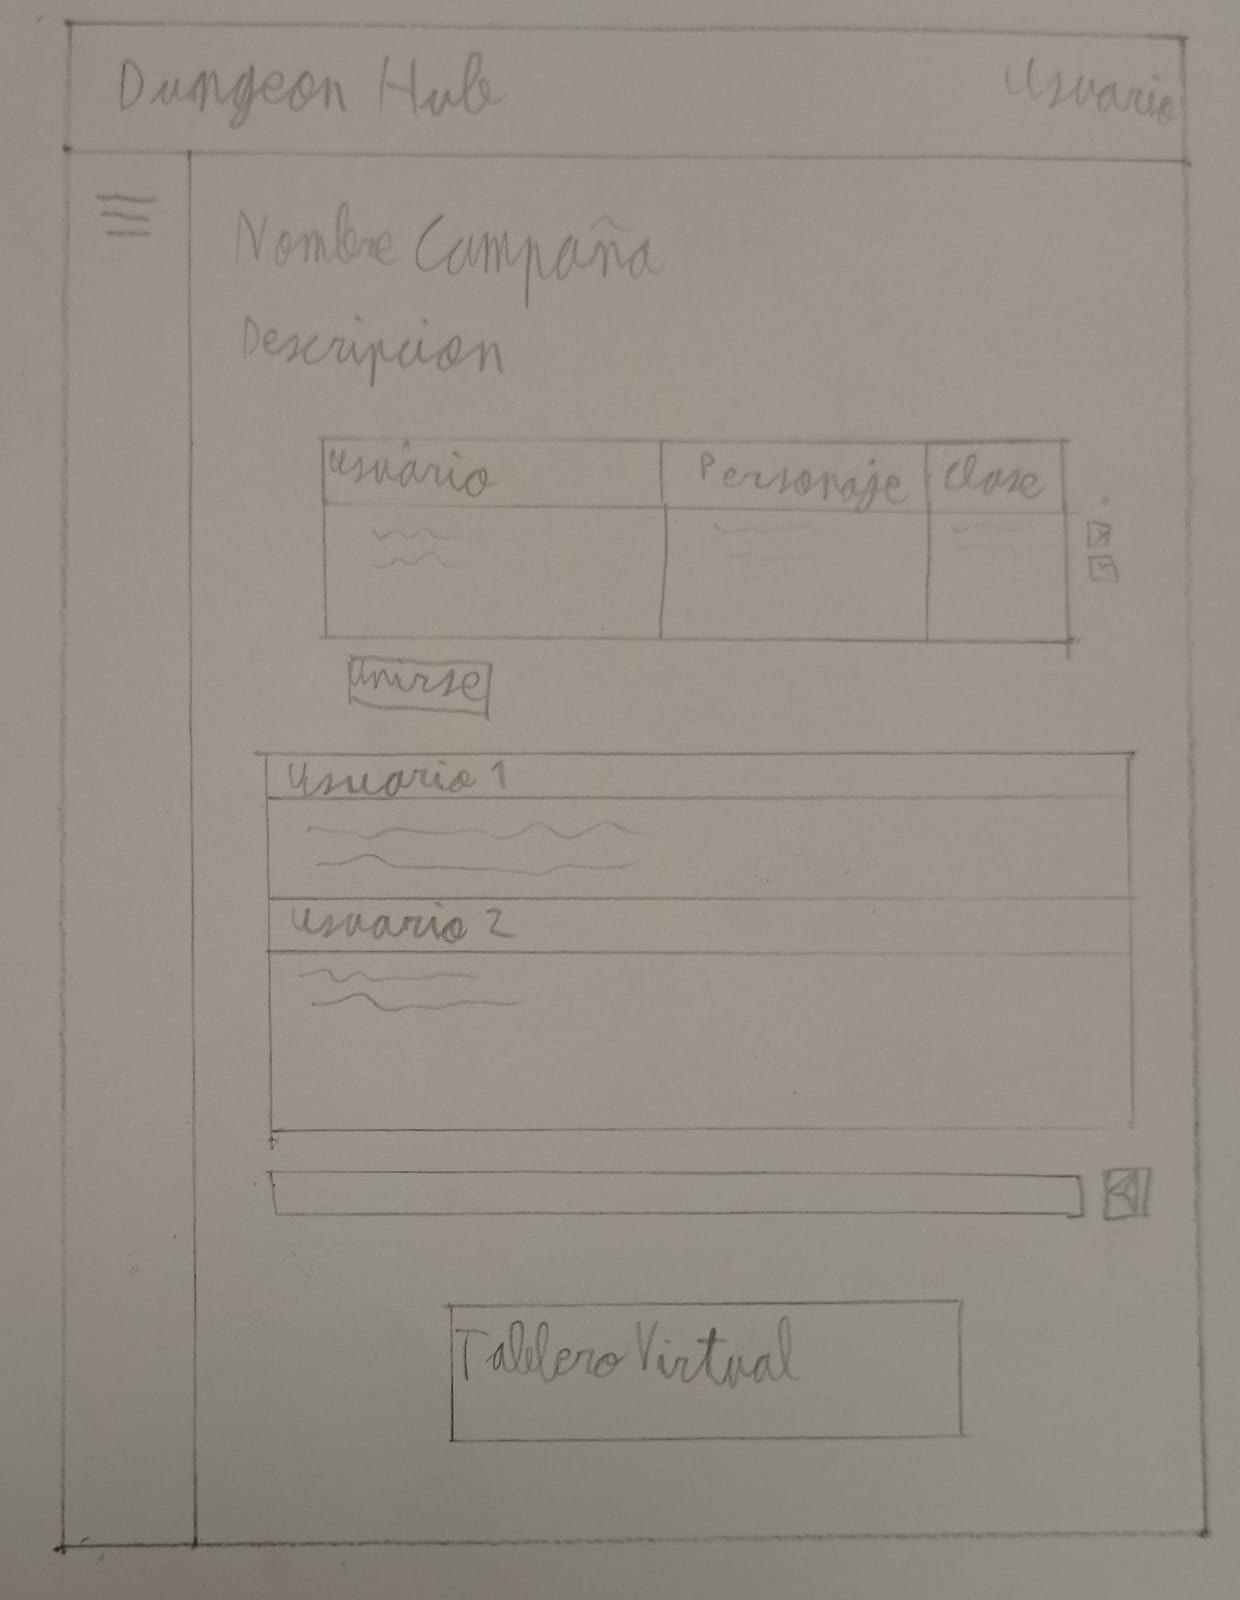 Dungeon Hub Usuario
Nombre Campaña
Descripcion
Usuario Personaje Clase
Unirse
Usuario 1
Usuario 2
Tablero Virtual